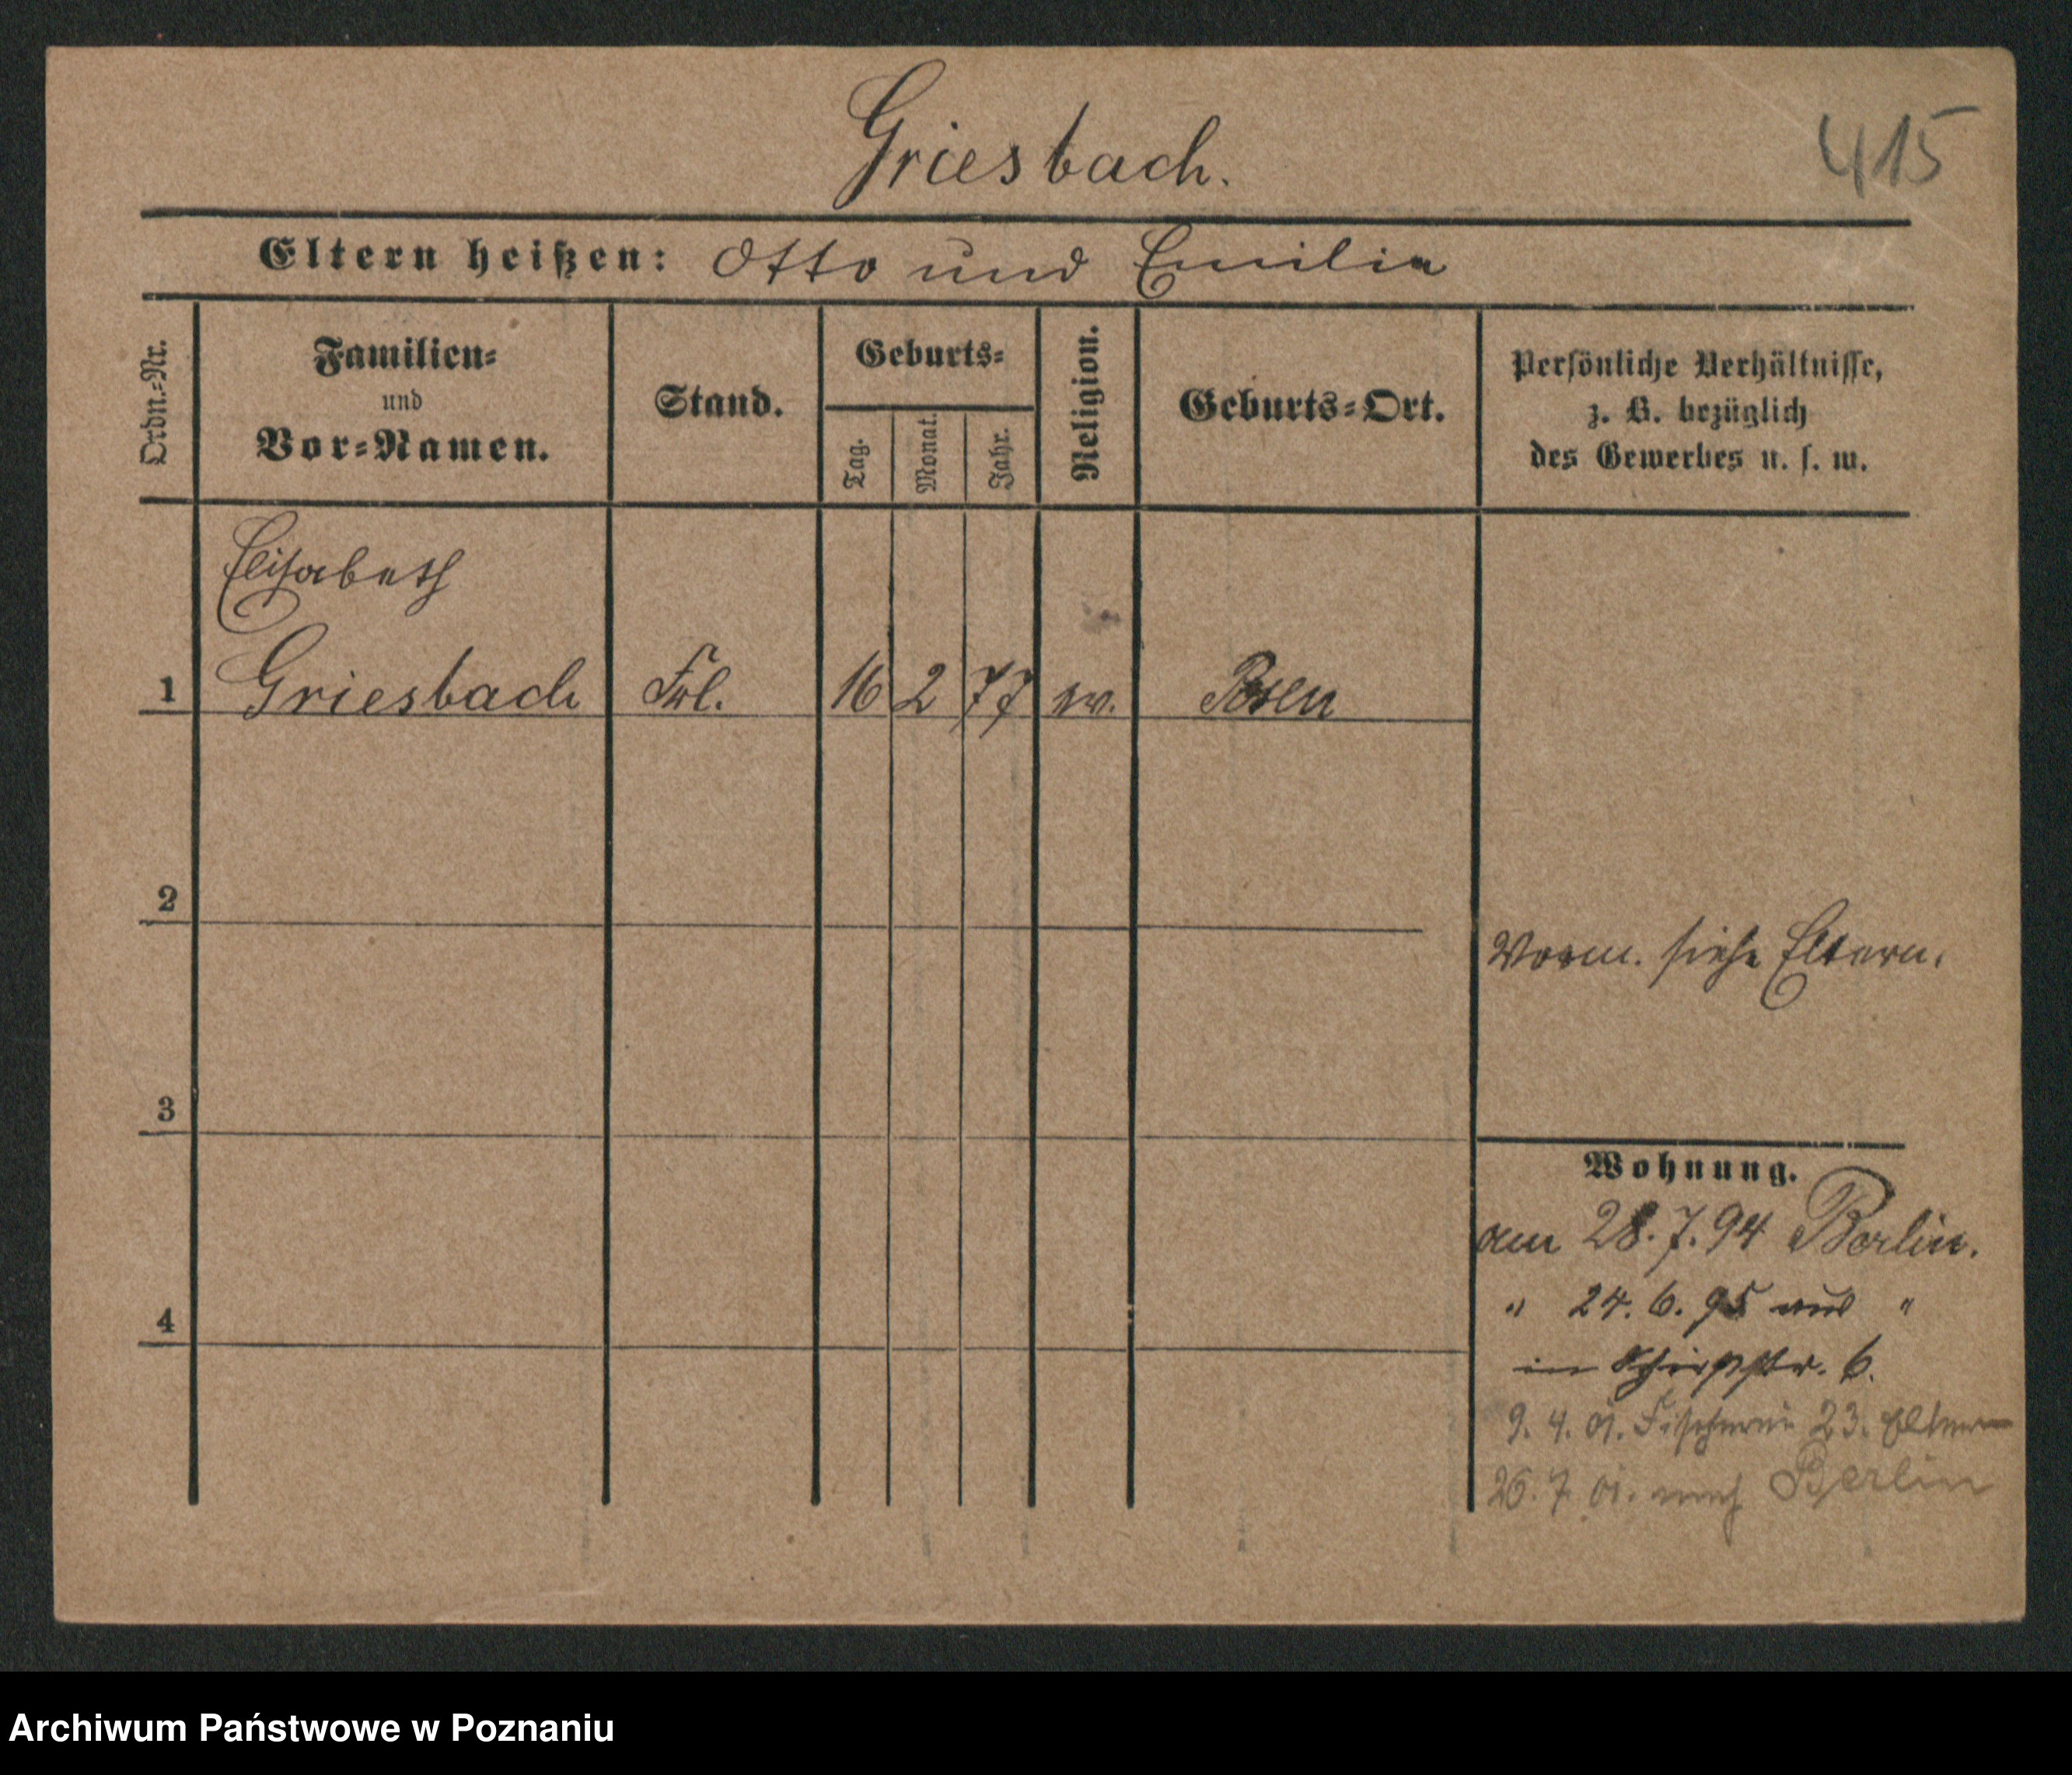 Griesbach.
415
Eltern heißen: Otto und Emilie
Ordn.-Nr.
Familien-
und
Vor-Namen.
Stand.
Geburts-
Tag.
Monat.
Jahr.
Religion.
Geburts-Ort.
Persönliche Verhältnisse,
z. B. bezüglich
des Gewerbes u. s. w.
Elisabeth
1 Griesbach Frl. 16 2 77 ev. Posen
2
Vorm. siehe Eltern.
3
Wohnung.
am 28.7.94 Berlin.
4
" 24.6.95 aus "
in 6.
9.4.01. Fischerei 23. Eltern
26.7.01. nach Berlin
Archiwum Państwowe w Poznaniu